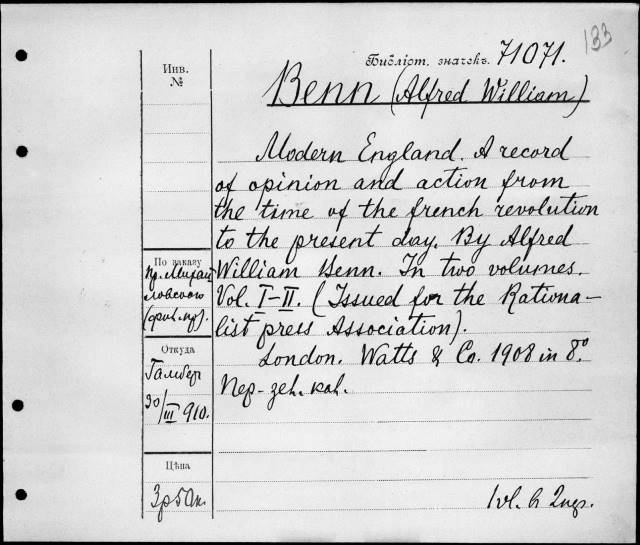 133
Библіот. значекъ. 71071.
Инв.
№
Benn (Alfred William)
Modern England. A record
of opinion and action from
the time of the french revolution
to the present day. By Alfred
William Benn. In two volumes.
Vol. I–II. (Issued for the Rationa–
list press Association).
London. Watts & Co. 1908 in 8°.
Пер-зел. кол.
По заказу
пр. Михай
ловскаго
Откуда
Гамбер
30/III 910.
Цѣна
3р50к.
1vl. в 2